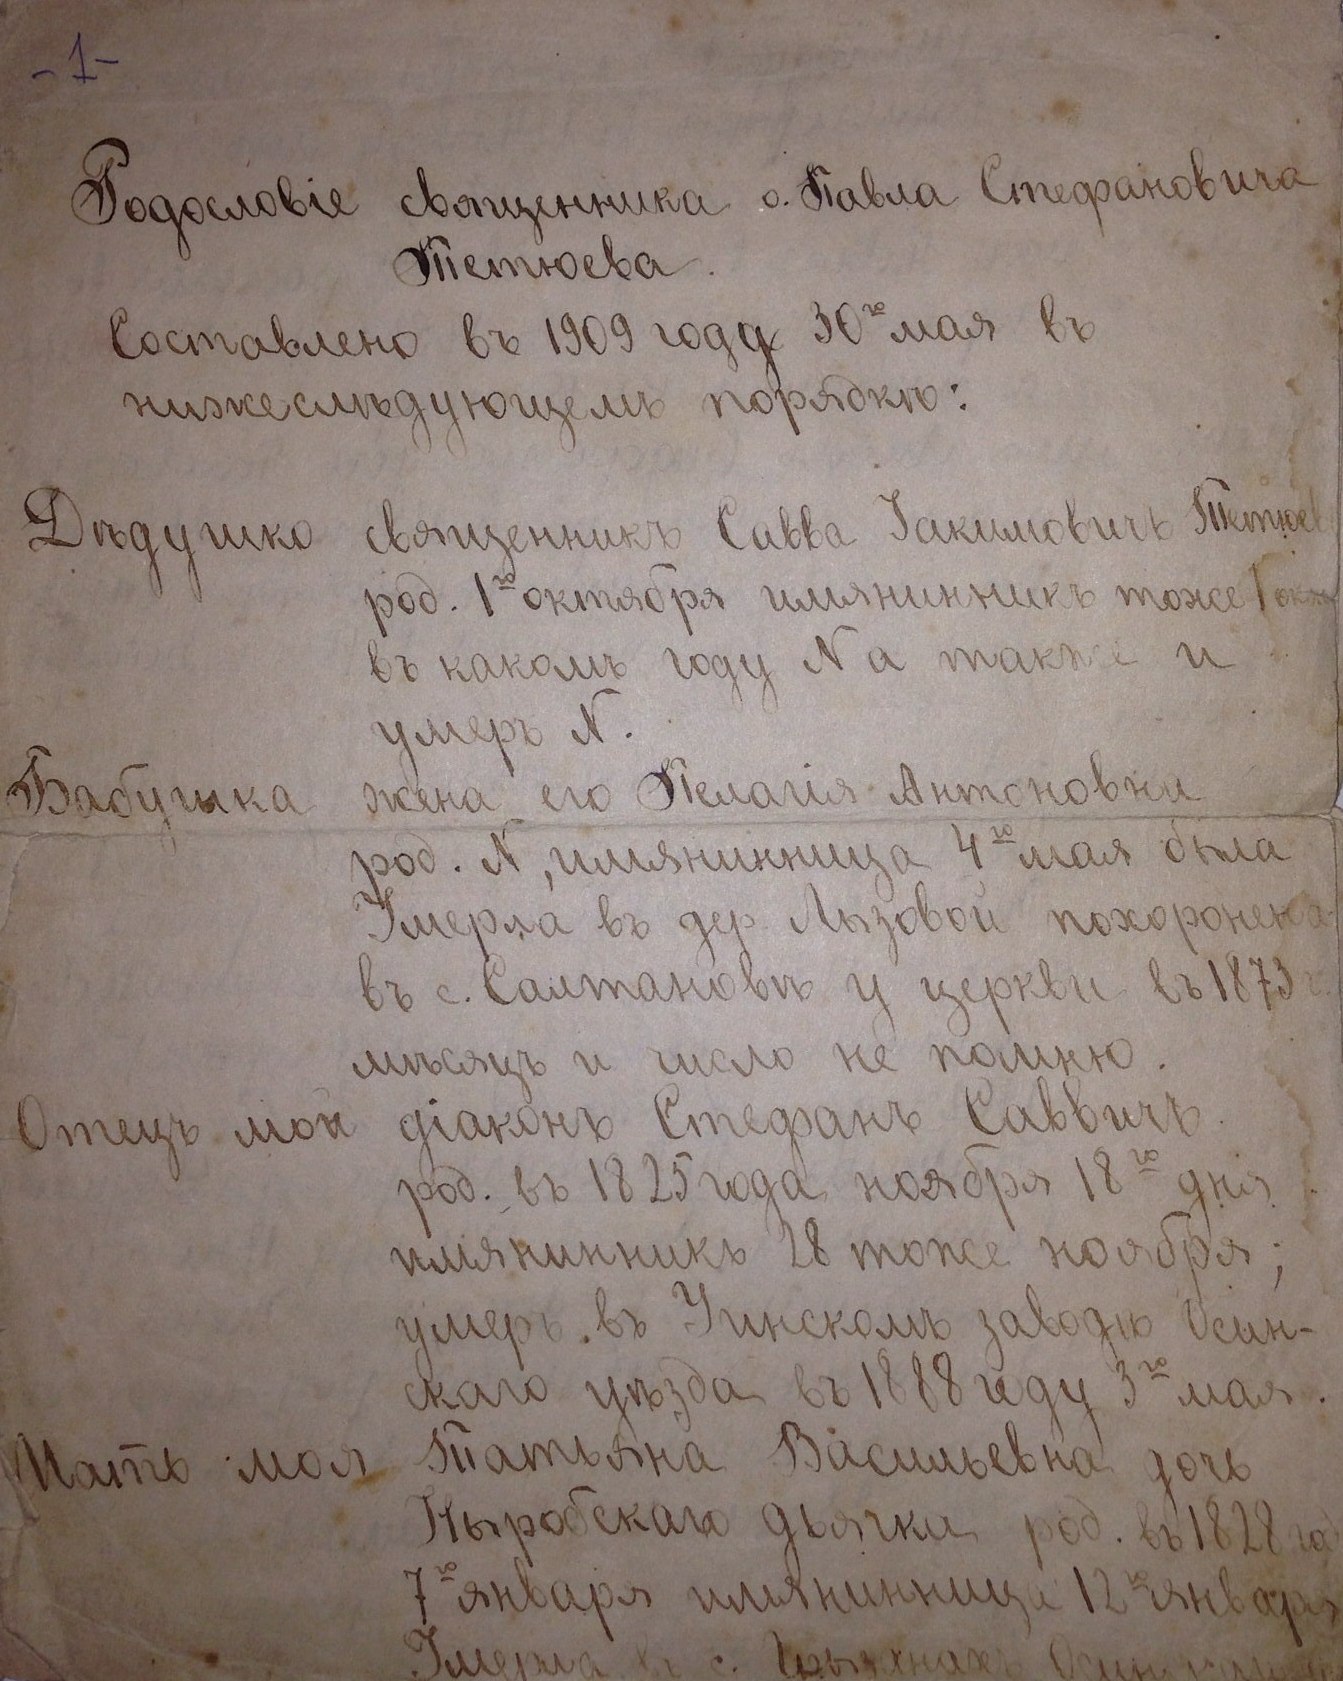 -1-
Родословіе священника о. Павла Стефановича
Тетюева.
Составлено въ 1909 году 30го мая въ
нижеслѣдующемъ порядкѣ:
Дѣдушко священникъ Савва Іакимовичъ Тетюев
род. 1го октября имянинникъ тоже 1 окт
въ какомъ году N а также и
умеръ N.
Бабушка жена его Пелагія Антоновна
род. N, имянинница 4го мая была
Умерла въ дер. Лызовой похоронена
въ с. Салтановѣ у церкви въ 1873 г.
мѣсяцъ и число не помню.
Отецъ мой діаконъ Стефанъ Саввичъ
род. въ 1825 года ноября 18го дня
имянинникъ 28 тоже ноября;
умеръ въ Уинскомъ заводѣ Осин-
скаго уѣзда въ 1888 году 3го мая.
Мать моя Татьяна Васильевна дочь
Ныробскаго дьячка род. въ 1828 год
7го января имянинница 12го января
Умерла въ с.